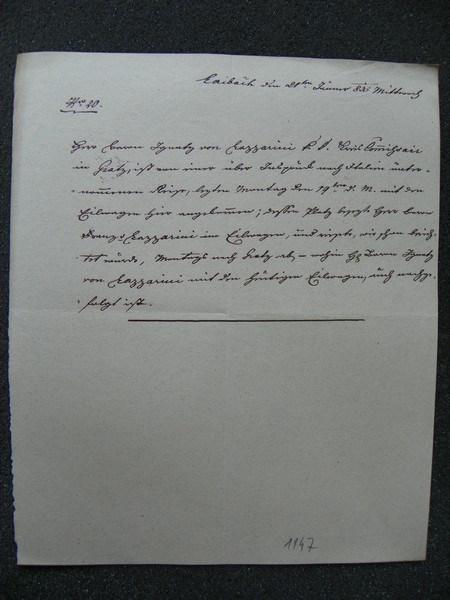 Laibach den 21ten Jänner 835 Mittwoch
Nr 20.
Herr Baron Ignatz von Lazzarini k. k. Kreis Commissair
in Gratz, ist von einer über Insbruck nach Italien unter-
nommenen Reise, lezten Montag den 19ten d. M. mit dem
Eilwagen hier angekommen; dessen Platz besezt Herr Baron
Franz Lazzarini im Eilwagen, und reiste, wie schon berich-
tet wurde, Montags nach Gratz ab, – wohin H Baron Ignatz
von Lazzarini mit dem heutigen Eilwagen, auch nachge-
folgt ist.
1147